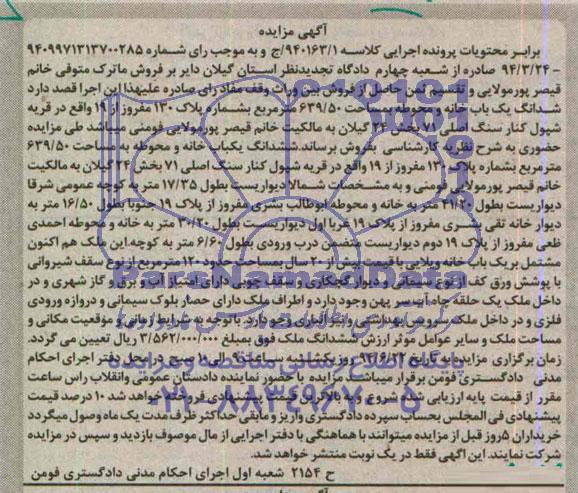 آگهی مزایده
برابر محتویات پرونده اجرایی کلاسه ۹۴۰۱۶۳/۱/ج و به موجب رای شماره ۹۴۰۹۹۷۱۳۱۳۷۰۰۲۸۵
- ۹۴/۳/۲۴ صادره از شعبه چهارم دادگاه تجدیدنظر استان گیلان دایر بر فروش ماترک متوفی خانم
قیصر پورمولایی و تقسیم ثمن حاصل از فروش بین وراث وقف مفاد رای صادره علیهذا این اجرا قصد دارد
ششدانگ یک باب خانه و محوطه بمساحت ۶۳۹/۵۰ مترمربع بشماره پلاک ۱۳۰ مفروز از ۱۹ واقع در قریه
شپول کنار سنگ اصلی ۷۱ بخش ۲۴ گیلان به مالکیت خانم قیصر پورمولایی فومنی میباشد طی مزایده
حضوری به شرح نظریه کارشناسی بفروش برساند.ششدانگ یکباب خانه و محوطه به مساحت ۶۳۹/۵۰
مترمربع بشماره پلاک ۱۳۰ مفروز از ۱۹ واقع در قریه شپول کنار سنگ اصلی ۷۱ بخش ۲۴ گیلان به مالکیت
خانم قیصر پورمولایی فومنی و به مشخصات شمالا دیواریست بطول ۱۷/۳۵ متر به کوچه عمومی شرقا
دیواریست بطول ۴۱/۲۰ متر به خانه و محوطه ابوطالب بشری مفروز از پلاک ۱۹ جنوبا بطول ۱۶/۵۰ متر به
دیوار خانه تقی بشری مفروز از پلاک ۱۹ غربا اول دیواریست بطول ۳۰/۲۰ متر به خانه و محوطه احمدی
ظعی مفروز از پلاک ۱۹ دوم دیواریست متضمن درب ورودی بطول ۶/۶۰ متر به کوچه.این ملک هم اکنون
مشتمل بریک باب خانه ویلایی با قیمت بیش از ۲۰ سال بمساحت حدود ۱۲۰ مترمربع از نوع سقف شیروانی
با پوشش ورق کف از نوع سیمانی و دیوار گچکاری و سقف چوبی دارای امتیاز آب و برق و گاز شهری و در
داخل ملک یک حلقه چاه آب سر پهن وجود دارد و اطراف ملک دارای حصار بلوک سیمانی و دروازه ورودی
فلزی و در داخل ملک سرویس بهداشتی و انبار وجود دارد. با توجه به شرایط زمانی و موقعیت مکانی و
مساحت ملک و سایر عوامل موثر ارزش ششدانگ ملک فوق بمبلغ ۳/۵۶۲/۰۰۰/۰۰۰ ریال تعیین می گردد.
زمان برگزاری مزایده به تاریخ ۹۶/۶/۲۲ روز یکشنبه ساعت ۹ الی ۱۰ صبح در محل دفتر اجرای احکام
مدنی دادگستری فومن برقرار میباشد. مزایده با حضور نماینده دادستان عمومی وانقلاب راس ساعت
مقرر از قیمت پایه ارزیابی شده شروع و به بالاترین قیمت پیشنهادی فروخته خواهد شد ۱۰ درصد قیمت
پیشنهادی فی المجلس بحساب سپرده دادگستری واریز و مابقی حداکثر ظرف مدت یک ماه وصول میگردد
خریداران ۵روز قبل از مزایده میتوانند با هماهنگی با دفتر اجرایی از مال موصوف بازدید و سپس در مزایده
شرکت نمایند. این اگهی فقط در یک نوبت منتشر خواهد شد.
ح ۲۱۵۴ شعبه اول اجرای احکام مدنی دادگستری فومن
ParaNamadData
پایگاه اطلاع رسانی مناقصه و مزایده
۰۲۱-۸۸۳۴۹۶۷۰-۵